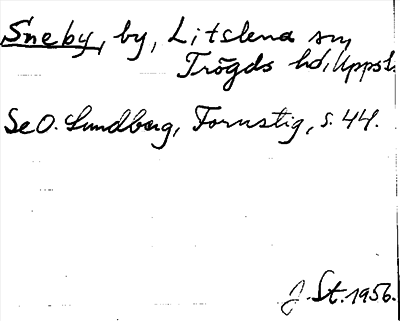 Sneby, by, Litslena sn,
Trögds hd, Uppsl.
Se O. Lundberg, Fornstig, s. 44.
J. St. 1956.